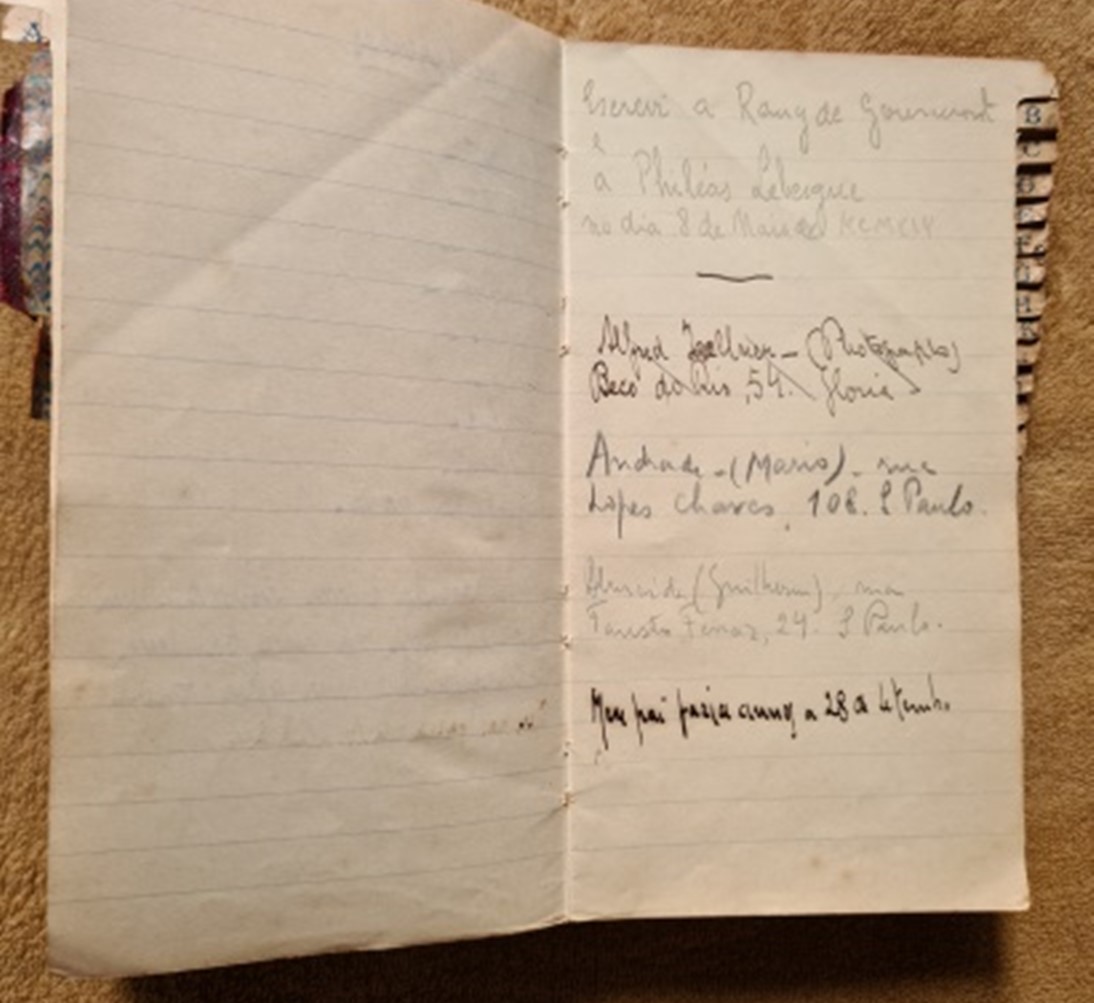 Escrevi a Remy de Gourmont
e
a Philéas Lebesgue
no dia 8 de Maio de MCMXIV
Alfred — (Photographo)
Beco do Rio, 54. Gloria
Andrade - (Mario). rua
Lopes Chaves, 108. S Paulo.
Almeida (Guilherme), rua
Fausto Ferraz, 24. S Paulo.
Meu pai fazia annos a 28 de Setemb.
B
C
D